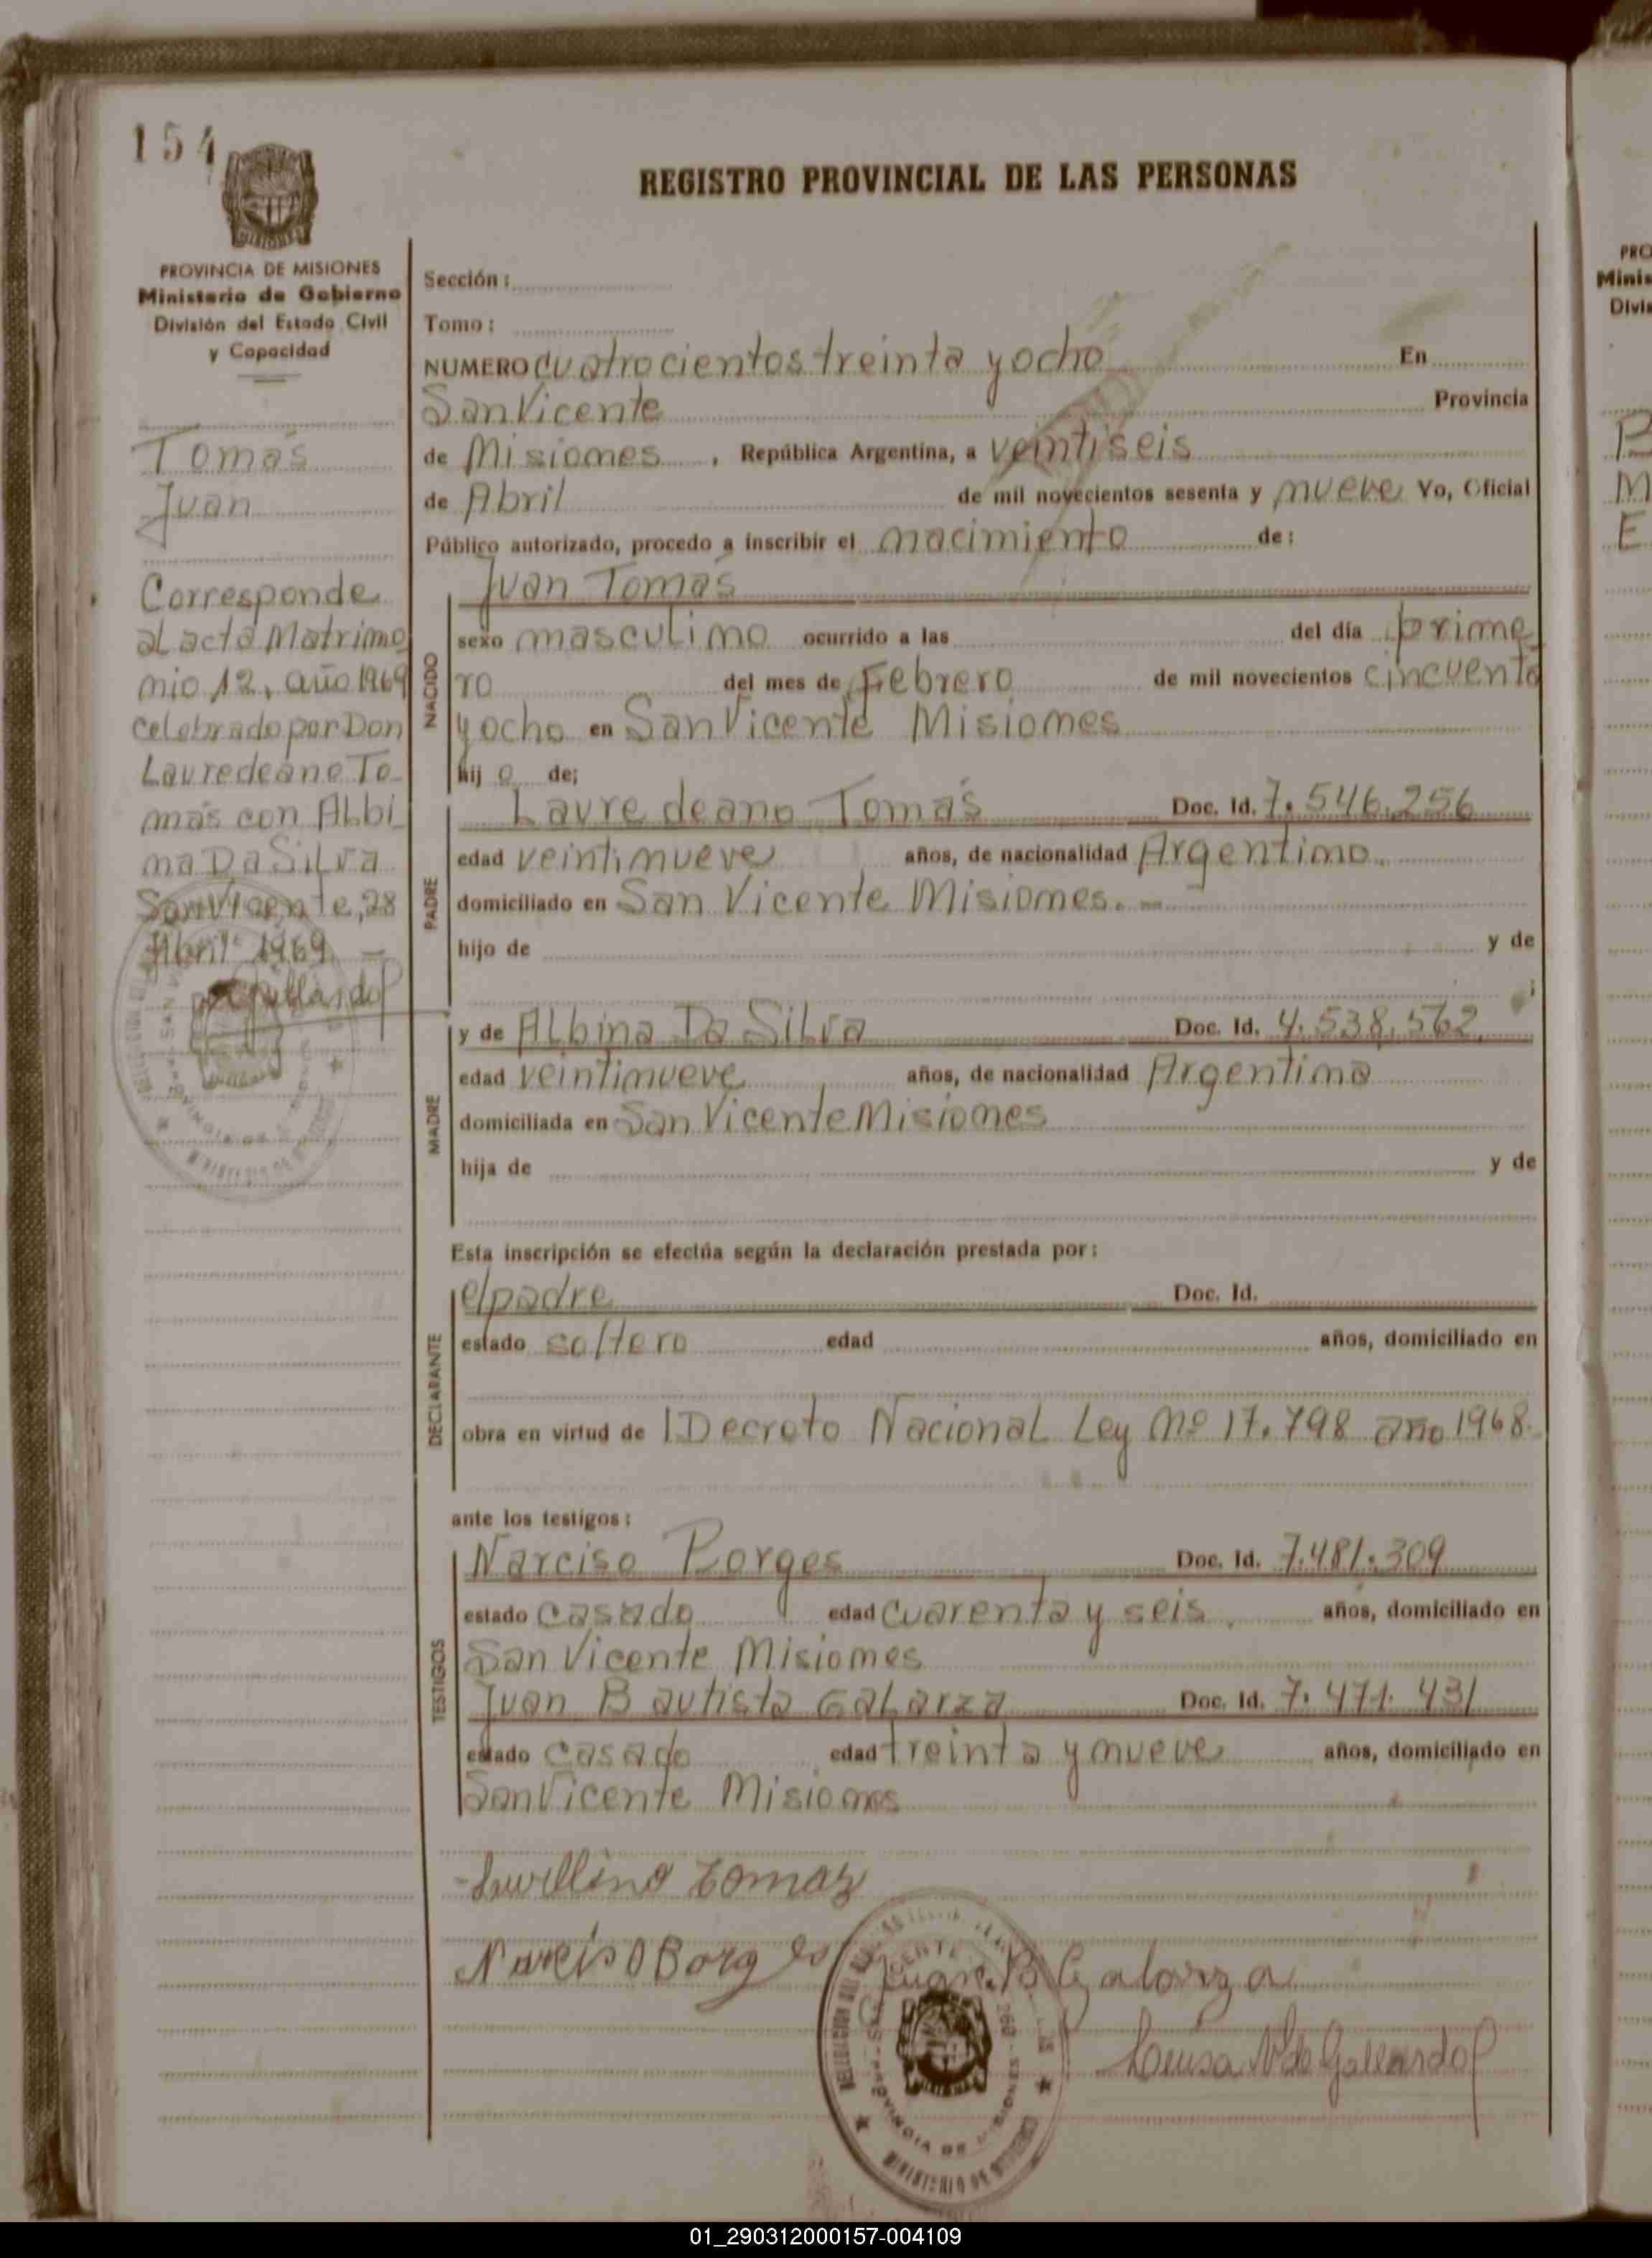 154
REGISTRO PROVINCIAL DE LAS PERSONAS
PROVINCIA DE MISIONES
Ministerio de Gobierno
División del Estado Civil
y Capacidad
Tomás
Juan
Corresponde
al acta Matrimo
nio 12, año 1969
celebrado por Don
Lauredeano To
más con Albi
na Da Silva
San Vicente, 28
Abril 1969
Sección:
Tomo:
NUMERO cuatrocientos treinta y ocho En
San Vicente Provincia
de Misiones, República Argentina, a veintiseis
de Abril de mil novecientos sesenta y nueve Yo, Oficial
Público autorizado, procedo a inscribir el nacimiento de:
NACIDO
Juan Tomás
sexo masculino ocurrido a las del día prime
ro del mes de Febrero de mil novecientos cincuenta
y ocho en San Vicente Misiones
hijo de;
PADRE
Lauredeano Tomás Doc. Id. 7.546.256
edad veintinueve años, de nacionalidad Argentino.
domiciliado en San Vicente Misiones.
hijo de y de
MADRE
y de Albina Da Silva Doc. Id. 4.538.562
edad veintinueve años, de nacionalidad Argentina
domiciliada en San Vicente Misiones
hija de y de
Esta inscripción se efectúa según la declaración prestada por:
DECLARANTE
el padre Doc. Id.
estado soltero edad años, domiciliado en
obra en virtud de Decreto Nacional Ley Nº 17.798 año 1968.
ante los testigos:
TESTIGOS
Narciso Borges Doc. Id. 7.481.309
estado casado edad cuarenta y seis. años, domiciliado en
San Vicente Misiones
Juan Bautista Galarza Doc. Id. 7.471.431
estado casado edad treinta y nueve años, domiciliado en
San Vicente Misiones
Tomaz
Narciso Borges
Juan B Galarza
Luisa N de Gallardo
PROVINCIA DE MISIONES
01_290312000157-004109